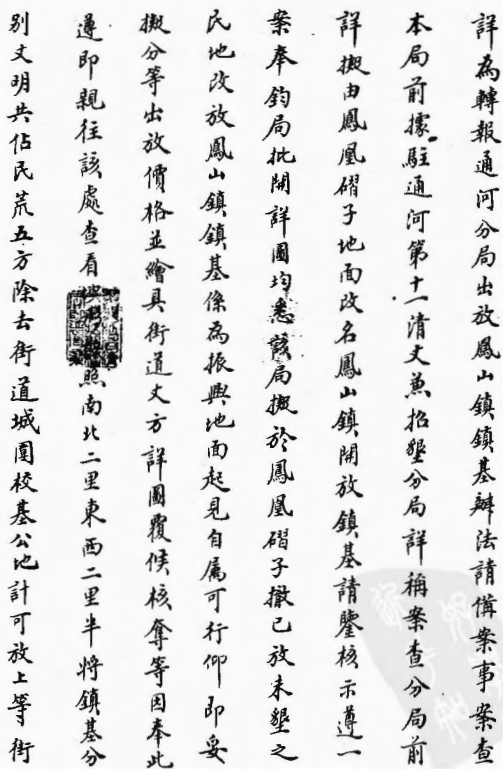 詳為轉報通河分局出放鳳山鎮鎮基辦法請備案事案查
本局前據駐通河第十一清丈兼招墾分局詳稱案查分局前
詳擬由鳳凰磖子地面改名鳳山鎮開放鎮基請鑒核示遵一
案奉鈞局批開詳圖均悉該局擬於鳳凰磖子撤已放未墾之
民地改放鳳山鎮鎮基係為振興地面起見自屬可行仰即妥
擬分等出放價格並繪具街道丈方詳圖覆候核奪等因奉此
遵即親往該處查看照南北二里東西二里半將鎮基分
別丈明共佔民荒五方除去街道城園校基公地計可放上等街